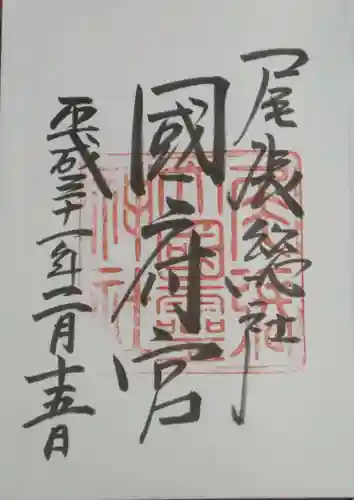 尾張総社
國府宮
平成三十一年二月十五日